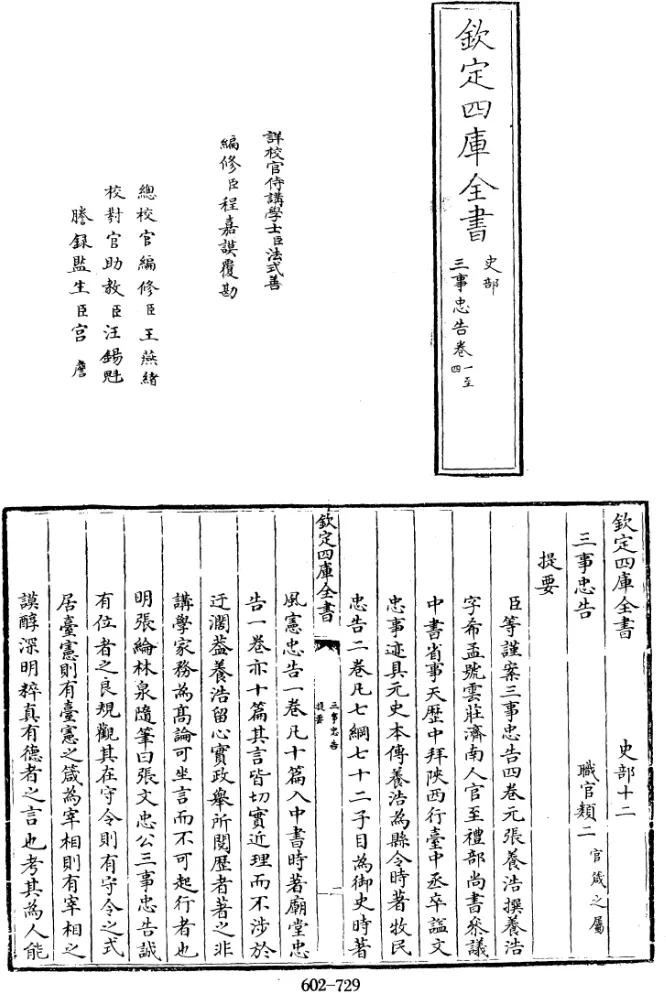 欽定四庫全書
史部
三事忠告卷一至四
詳校官侍講學士臣法式善
編修臣程嘉謨覆勘
總校官編修臣王燕緒
校對官助教臣汪錫魁
謄錄監生臣宮詹
欽定四庫全書 史部十二
三事忠告 職官類二 官箴之屬
提要
臣等謹案三事忠告四卷元張養浩撰養浩
字希孟號雲莊濟南人官至禮部尚書叅議
中書省事天歴中拜陝西行臺中丞卒諡文
忠事迹具元史本傳養浩為縣令時著牧民
忠告二卷凡七綱七十二子目為御史時著
欽定四庫全書
三事忠告
提要
一
風憲忠告一卷凡十篇入中書時著廟堂忠
告一卷亦十篇其言皆切實近理而不涉於
迂濶葢養浩留心實政舉所閱歴者著之非
講學家務為髙論可坐言而不可起行者也
明張綸林泉隨筆曰張文忠公三事忠告誠
有位者之良規觀其在守令則有守令之式
居臺憲則有臺憲之箴為宰相則有宰相之
謨醇深明粹真有德者之言也考其為人能
602-729